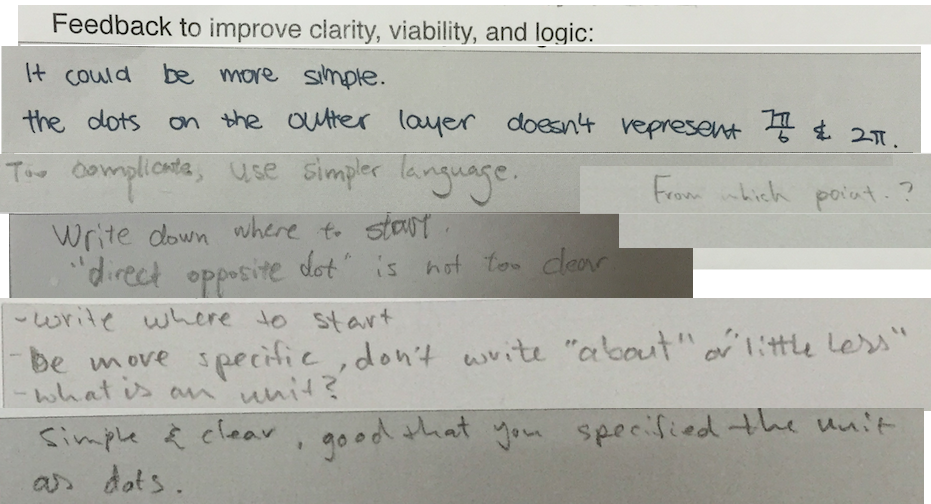 Feedback to improve clarity, viability, and logic:
It could be more simple.
the dots on the outter layer doesn't represent 7π/6 & 2π.
Too complicate, use simpler language.
From which point.?
Write down where to start.
"direct opposite dot" is not too clear
- write where to start
- be more specific, don't write "about" or "little less"
- what is an unit?
Simple & clear, good that you specified the unit
as dots.